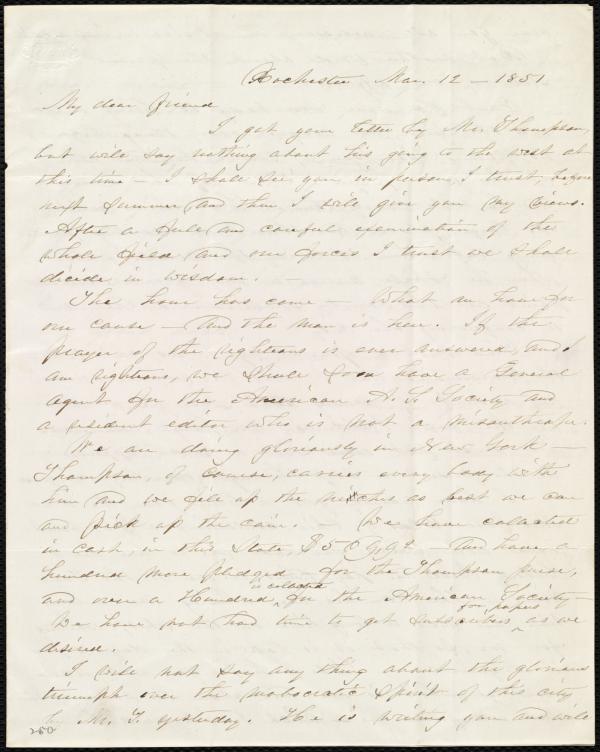 Rochester Mar. 12 - 1851
My dear friend
I got your letter by Mr. Thompson,
but will say nothing about his going to the west at
this time - I shall see you, in person, I trust, before
next summer and then I will give you my views.
After a full and careful examination of the
whole field and our forces I trust we shall
decide in wisdom. -
The hour has come - What an hour for
our cause - And the man is here. If the
prayer of the righteous is ever answered, and I
am righteous, we shall soon have a General
Agent for the American A. S. Society and
a resident editor who is not a misanthrope.
We are doing gloriously in New York -
Thompson, of course, carries every body with
him and we fill up the niches as best we can
and pick up the coin. - We have collected
in cash, in this State, - and have a
hundred more pledged - for the Thompson purse,
and over a Hundred in collected for the American Society -
We have not had time to get subscribers for papers as we
desired.
I will not say any thing about the glorious
triumph over the mobocratic spirit of this city
by Mr. T. yesterday. He is writing you and will
250